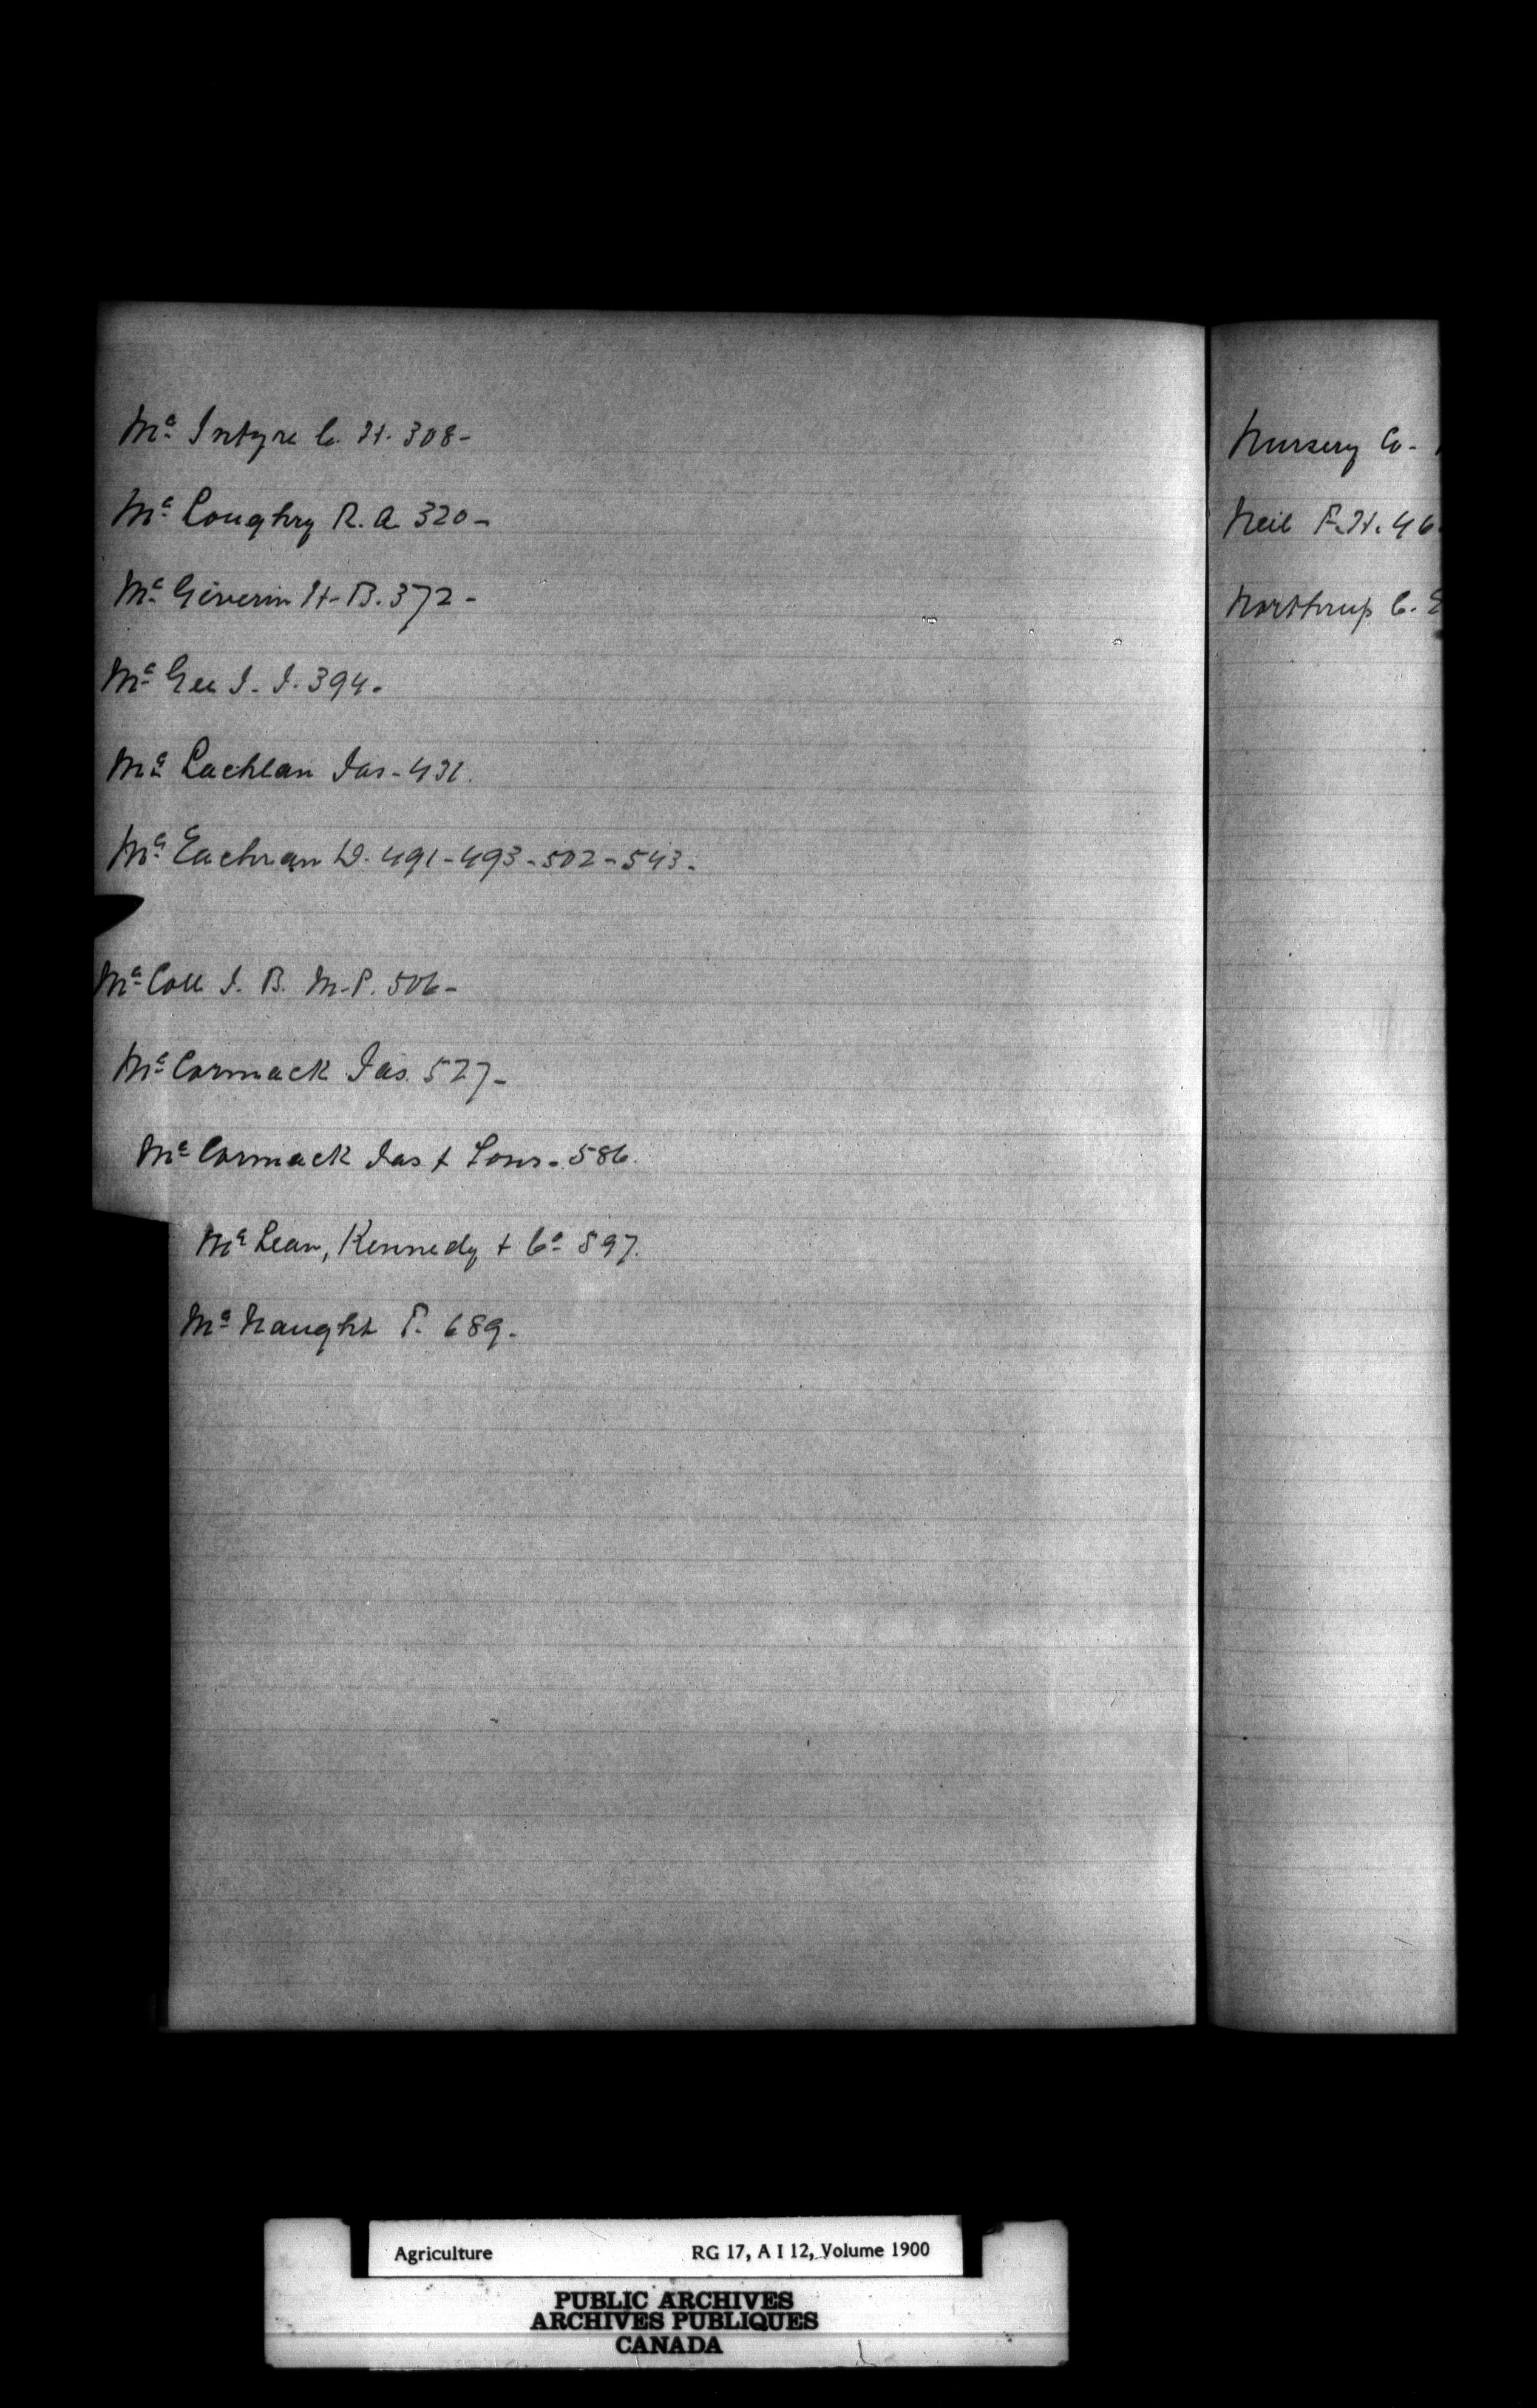 Mc Intyre C. H. 308-
Mc Loughry R. A. 320-
Mc Giverin H. B. 372-
Mc Gee J. J. 394-
Mc Lachlan Jas - 431.
Mc Eachran D. 491-493-502-543-
Mc Coll J. B. M.P. 506-
Mc Cormack Jas. 527-
Mc Cormack Jas & Sons - 586.
Mc Lean, Kennedy & Co 597.
Mc Naught P. 689-
Nursery Co-
Neil F. H. 46
Northrup C.
Agriculture RG 17, A I 12, Volume 1900
PUBLIC ARCHIVES
ARCHIVES PUBLIQUES
CANADA